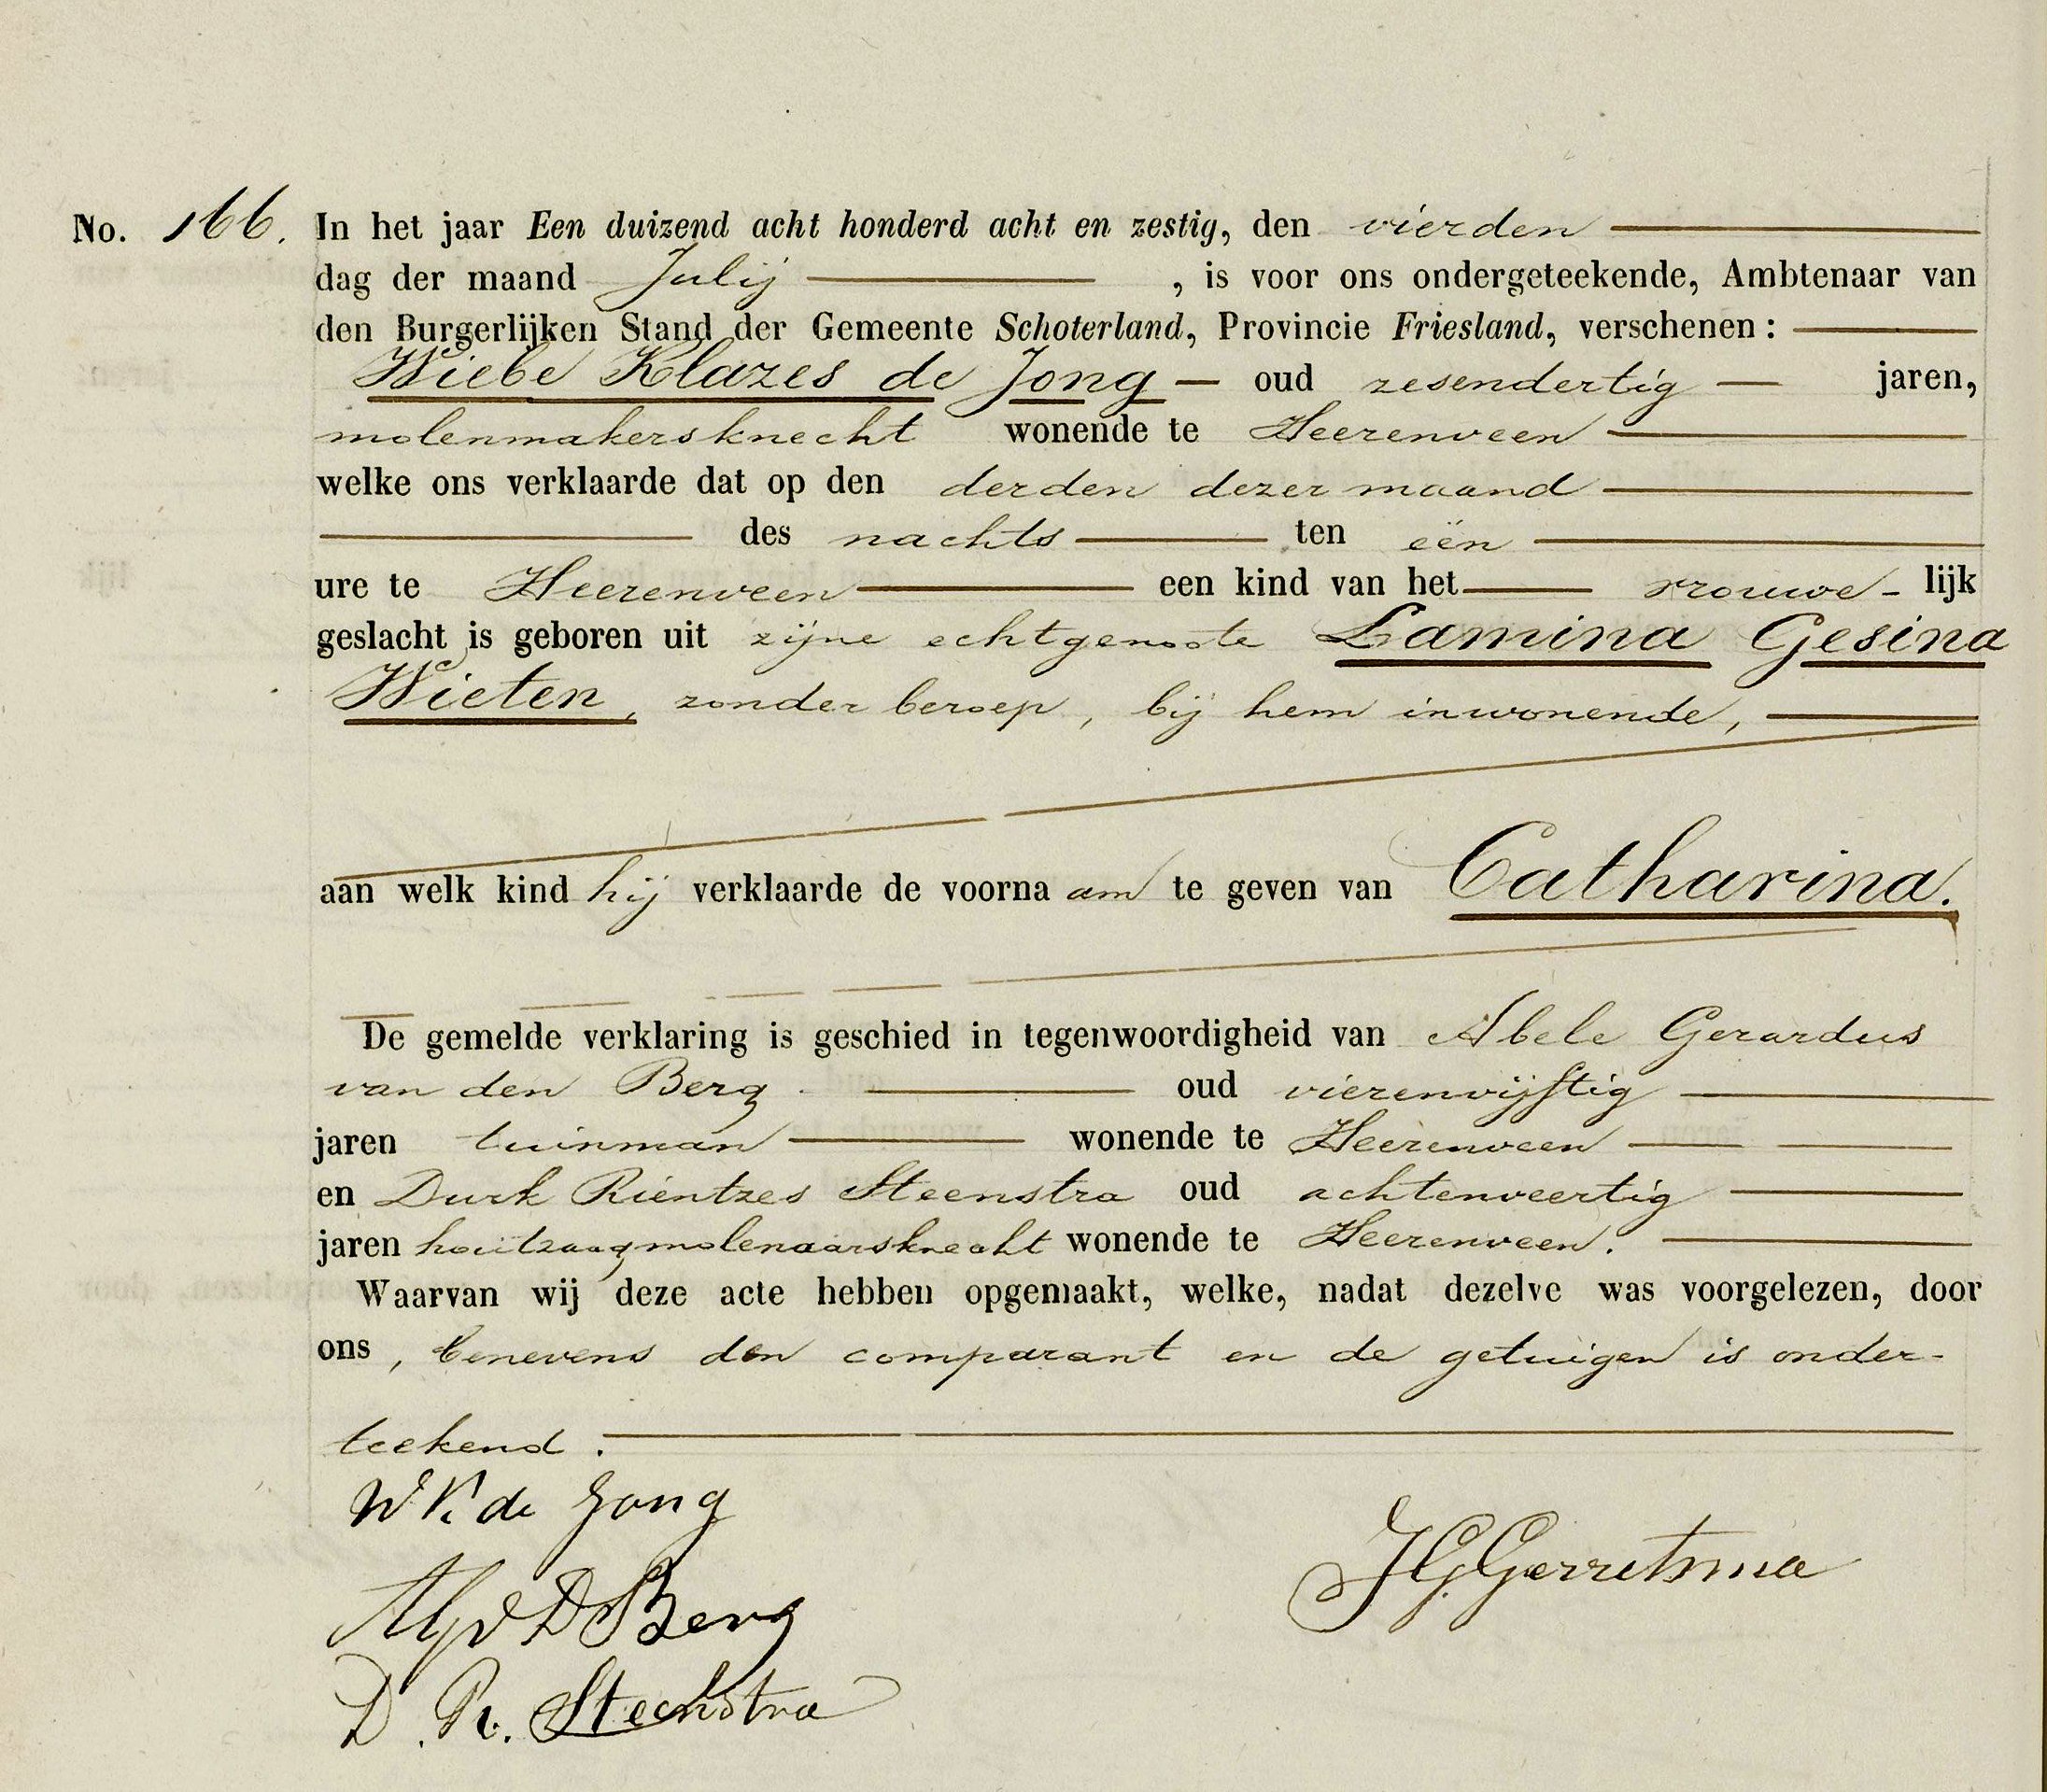 No. 166. In het jaar Een duizend acht honderd acht en zestig, den vierden
dag der maand Julij , is voor ons ondergeteekende, Ambtenaar van
den Burgerlijken Stand der Gemeente Schoterland, Provincie Friesland, verschenen:
Wiebe Klazes de Jong oud zesendertig jaren,
molenmakersknecht wonende te Heerenveen
welke ons verklaarde dat op den derden dezer maand
des nachts ten één
ure te Heerenveen een kind van het vrouwe- lijk
geslacht is geboren uit zijne echtgenoote Lamina Gesina
Wieten, zonder beroep, bij hem inwonende,
aan welk kind hij verklaarde de voorna am te geven van Catharina.
De gemelde verklaring is geschied in tegenwoordigheid van Abele Gerardus
van den Berg oud vierenvijftig
jaren tuinman wonende te Heerenveen
en Durk Rientzes Steenstra oud achtenveertig
jaren houtzaagmolenaarsknecht wonende te Heerenveen.
Waarvan wij deze acte hebben opgemaakt, welke, nadat dezelve was voorgelezen, door
ons, benevens den comparant en de getuigen is onder-
teekend.
W K. de Jong
AGvDBerg
JGGerritsma
D. R. Steenstra